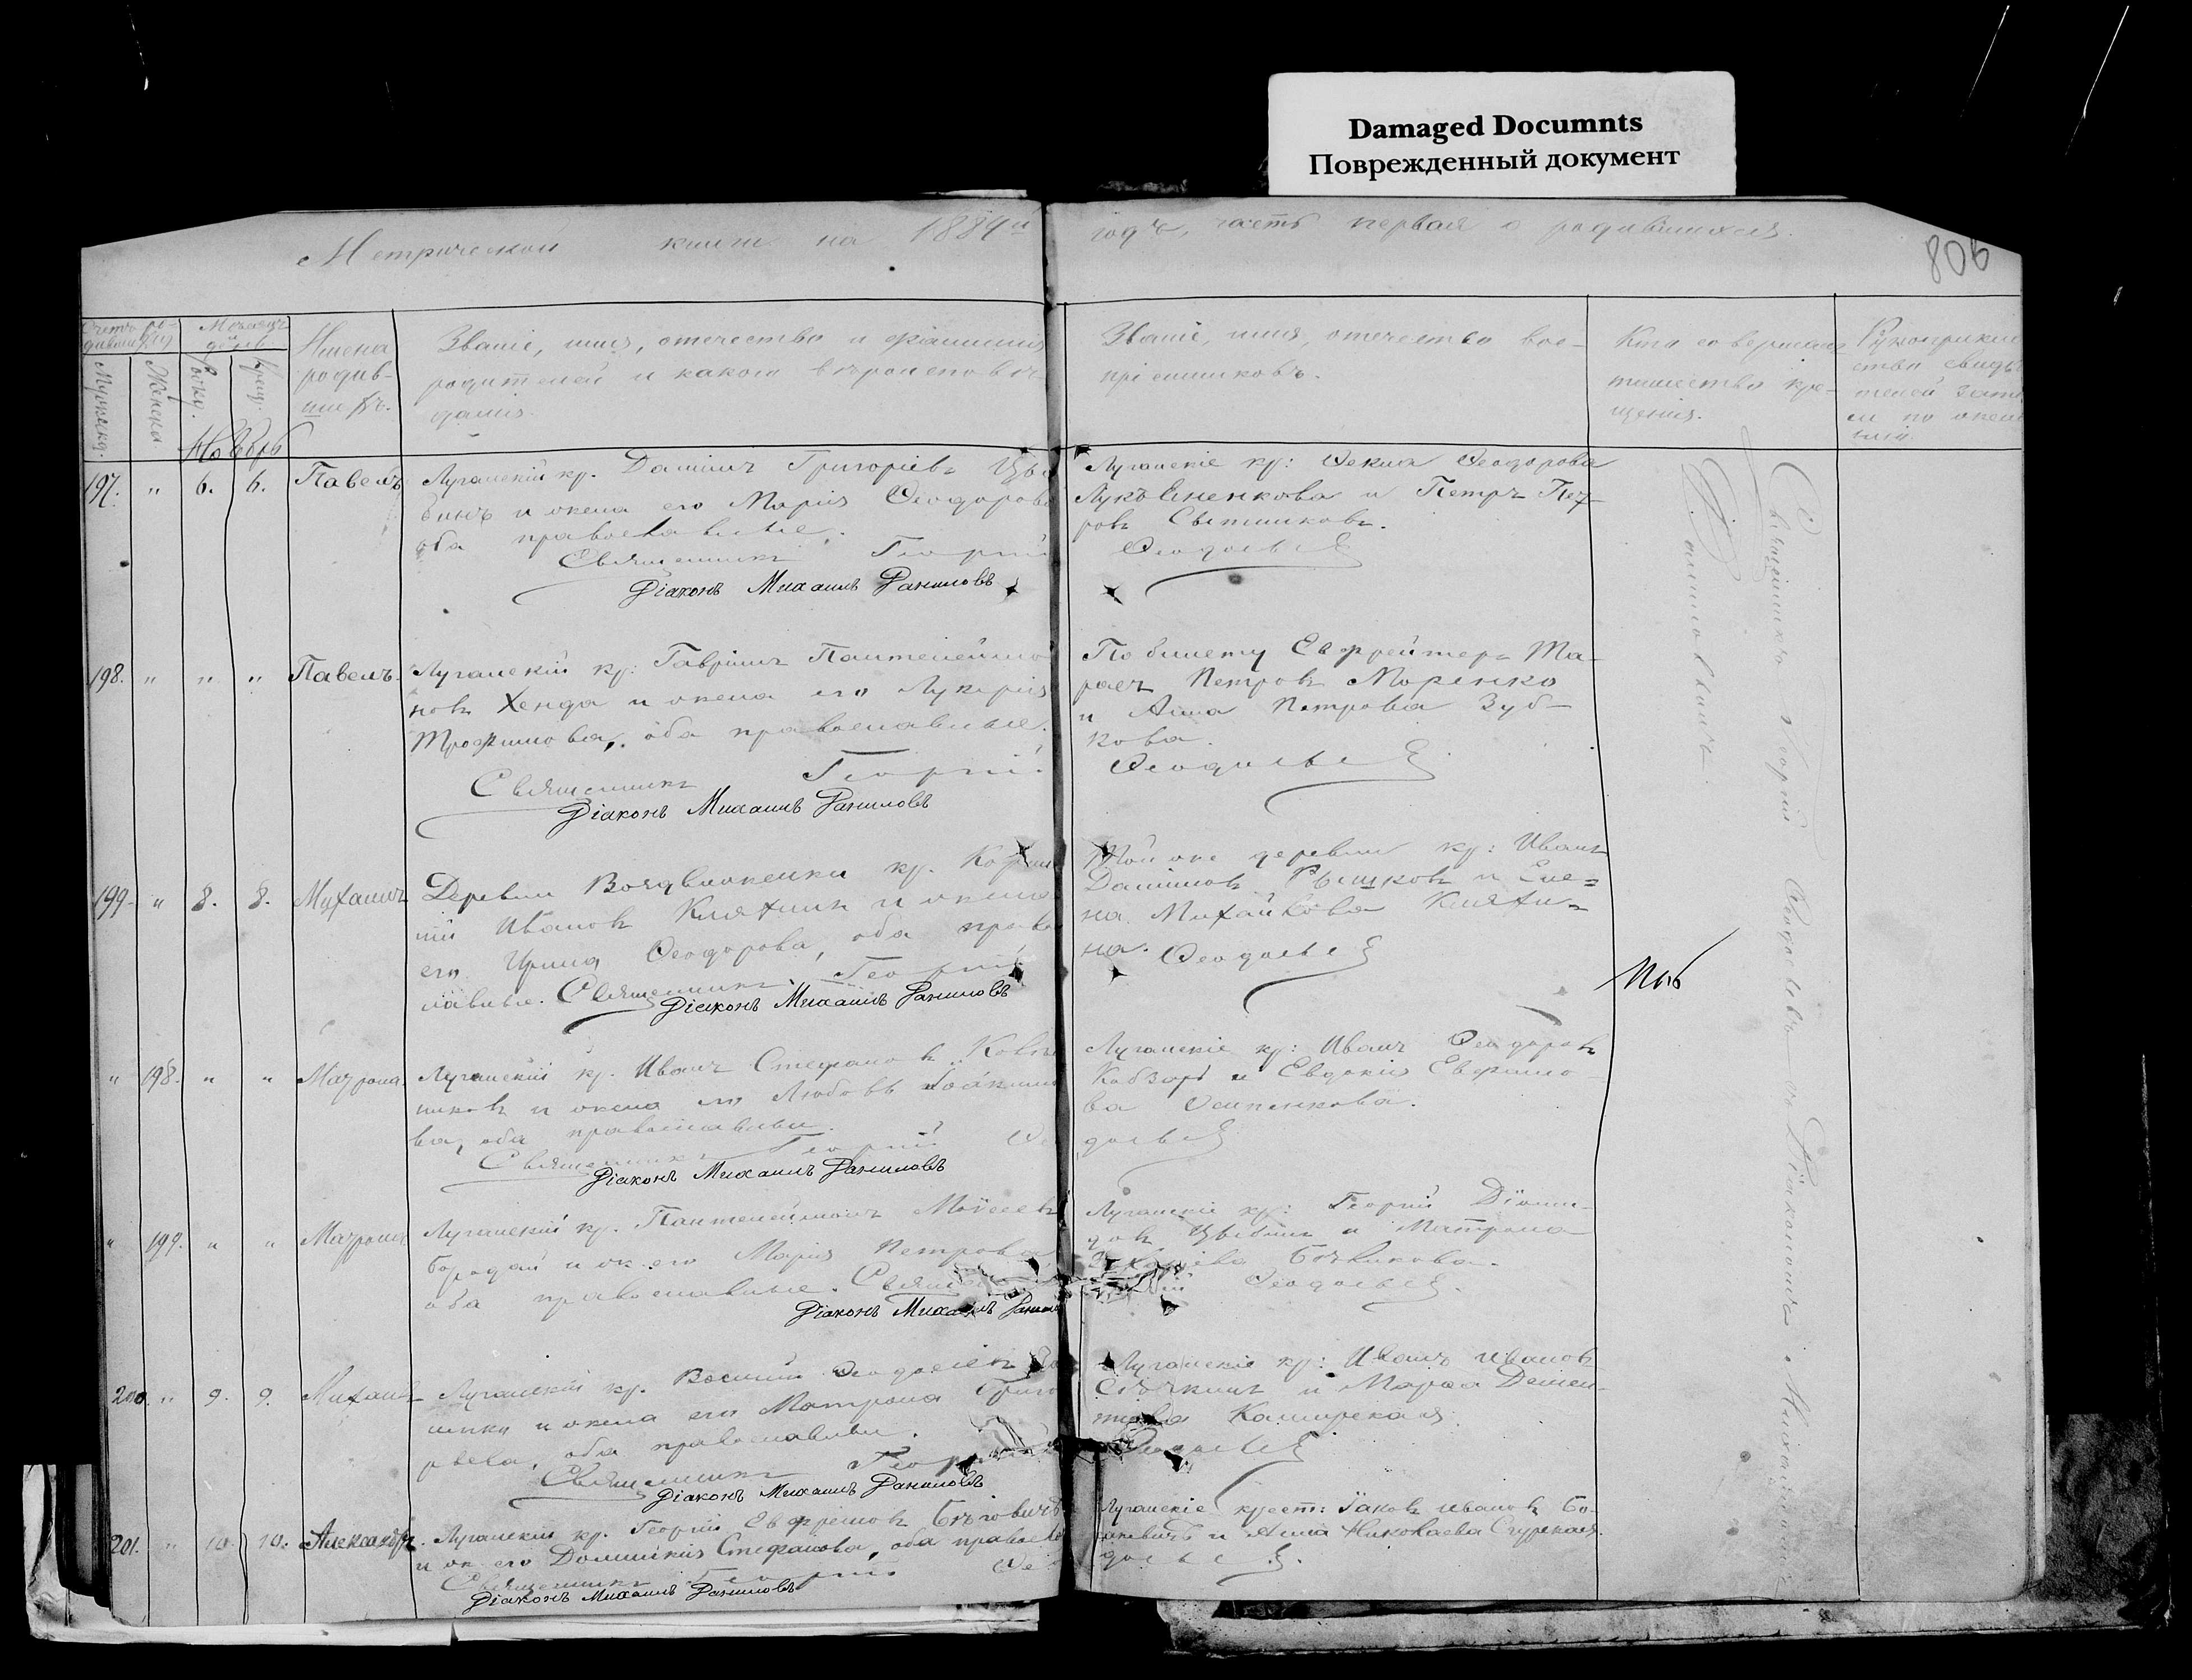 Damaged Documnts
Поврежденный документ
Метрической книги на 1884й годъ, часть первая о родившихся.
806
Счетъ родившихся
Мѣсяцъ и день
Мужеска.
Женска.
Рожд.
Крещ.
Имена родив-
шихъ.
Званіе, имя, отечество и фамилія
родителей и какого вѣроисповѣ-
данія.
Званіе, имя, отечество вос-
пріемниковъ.
Кто совершилъ
таинство кре-
щенія.
Рукоприклад
ство свидѣ
телей запи
си по жела
нію
Ноябрь
197. " 6. 6. Павелъ
Луганскій кр. Даніилъ Григоріевъ
и жена его Марія Ѳеодорова
оба православные.
Священникъ Георгій
Діаконъ Михаилъ Даниловъ
Луганскіе кр: Ѳекла Ѳеодорова
Лукьяненкова и Петръ Пет-
ровъ Сытниковъ.
Ѳеодосьевъ
198. " " " Павелъ.
Луганскій кр: Гавріилъ Пантелеймо
новъ Хенда и жена его Лукерія
Трофимова, оба православные.
Священникъ Георгій
Діаконъ Михаилъ Даниловъ
По билету Ефрейтеръ Та-
расъ Петровъ Моренко
и Анна Петрова Зуб-
кова.
Ѳеодосьевъ
199. " 8. 8. Михаилъ
Деревни Воздвиженки кр. Корни
лій Ивановъ Княжинъ и жена
его Ирина Ѳеодорова, оба право
славные. Священникъ Георгій
Діаконъ Михаилъ Даниловъ
Той же деревни кр: Иванъ
Даниловъ Рышковъ и Еле=
на Михайлова Княжи=
на. Ѳеодосьевъ
" 198. " " Матрона
Луганскій кр. Иванъ Стефановъ
и жена его Любовь Іоакимо
ва, оба православные.
Священникъ Георгій Ѳео
Діаконъ Михаилъ Даниловъ
Луганскіе кр: Иванъ Ѳеодоровъ
Кобзарь и Евдокія Ефимо-
ва Осипенкова.
досьевъ
" 199. " " Матрона
Луганскій кр. Пантелеймонъ Моѵсеевъ
Бородай и ж. его Марія Петрова
оба православные.
Діаконъ Михаилъ Данило
Луганскіе кр: Георгій
и Матрона
Ѳеодосьевъ.
200. " 9. 9. Михаилъ
Луганскій кр. Василій Ѳеодосіевъ
и жена его Матрона Григо
рьева, оба православные.
Священникъ Георгій
Діаконъ Михаилъ Даниловъ
Луганскіе кр: Иванъ Ивановъ
и Марѳа Демен-
тіева Каширская.
Ѳеодосьевъ
201. " 10. 10. Александръ.
Луганскій кр. Георгій Ефремовъ
и ж. его Домникія Стефанова, оба правосла
Священникъ Георгій Ѳео
Діаконъ Михаилъ Даниловъ
Луганскіе крест: Іаковъ Ивановъ
и Анна Николаева
досьевъ.
Священникъ Георгій Ѳеодосьевъ съ Діакономъ Михаиломъ
Даниловымъ.